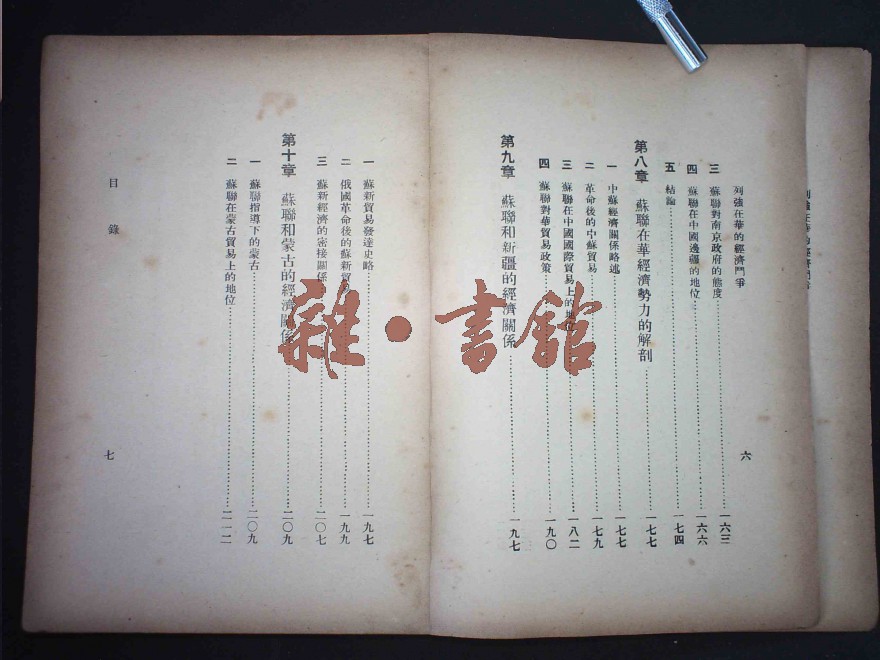 列強在華的經濟鬥爭
六
三 蘇聯對南京政府的態度……一六三
四 蘇聯在中國邊疆的地位……一六六
五 結論……一七四
第八章 蘇聯在華經濟勢力的解剖……一七七
一 中蘇經濟關係略述……一七七
二 革命後的中蘇貿易……一七九
三 蘇聯在中國國際貿易上的地位……一八二
四 蘇聯對華貿易政策……一九〇
第九章 蘇聯和新疆的經濟關係……一九七
一 蘇新貿易發達史略……一九七
二 俄國革命後的蘇新貿易……一九九
三 蘇新經濟的密接關係……二〇七
第十章 蘇聯和蒙古的經濟關係……二〇九
一 蘇聯指導下的蒙古……二〇九
二 蘇聯在蒙古貿易上的地位……二一二
目錄
七
雜·書館